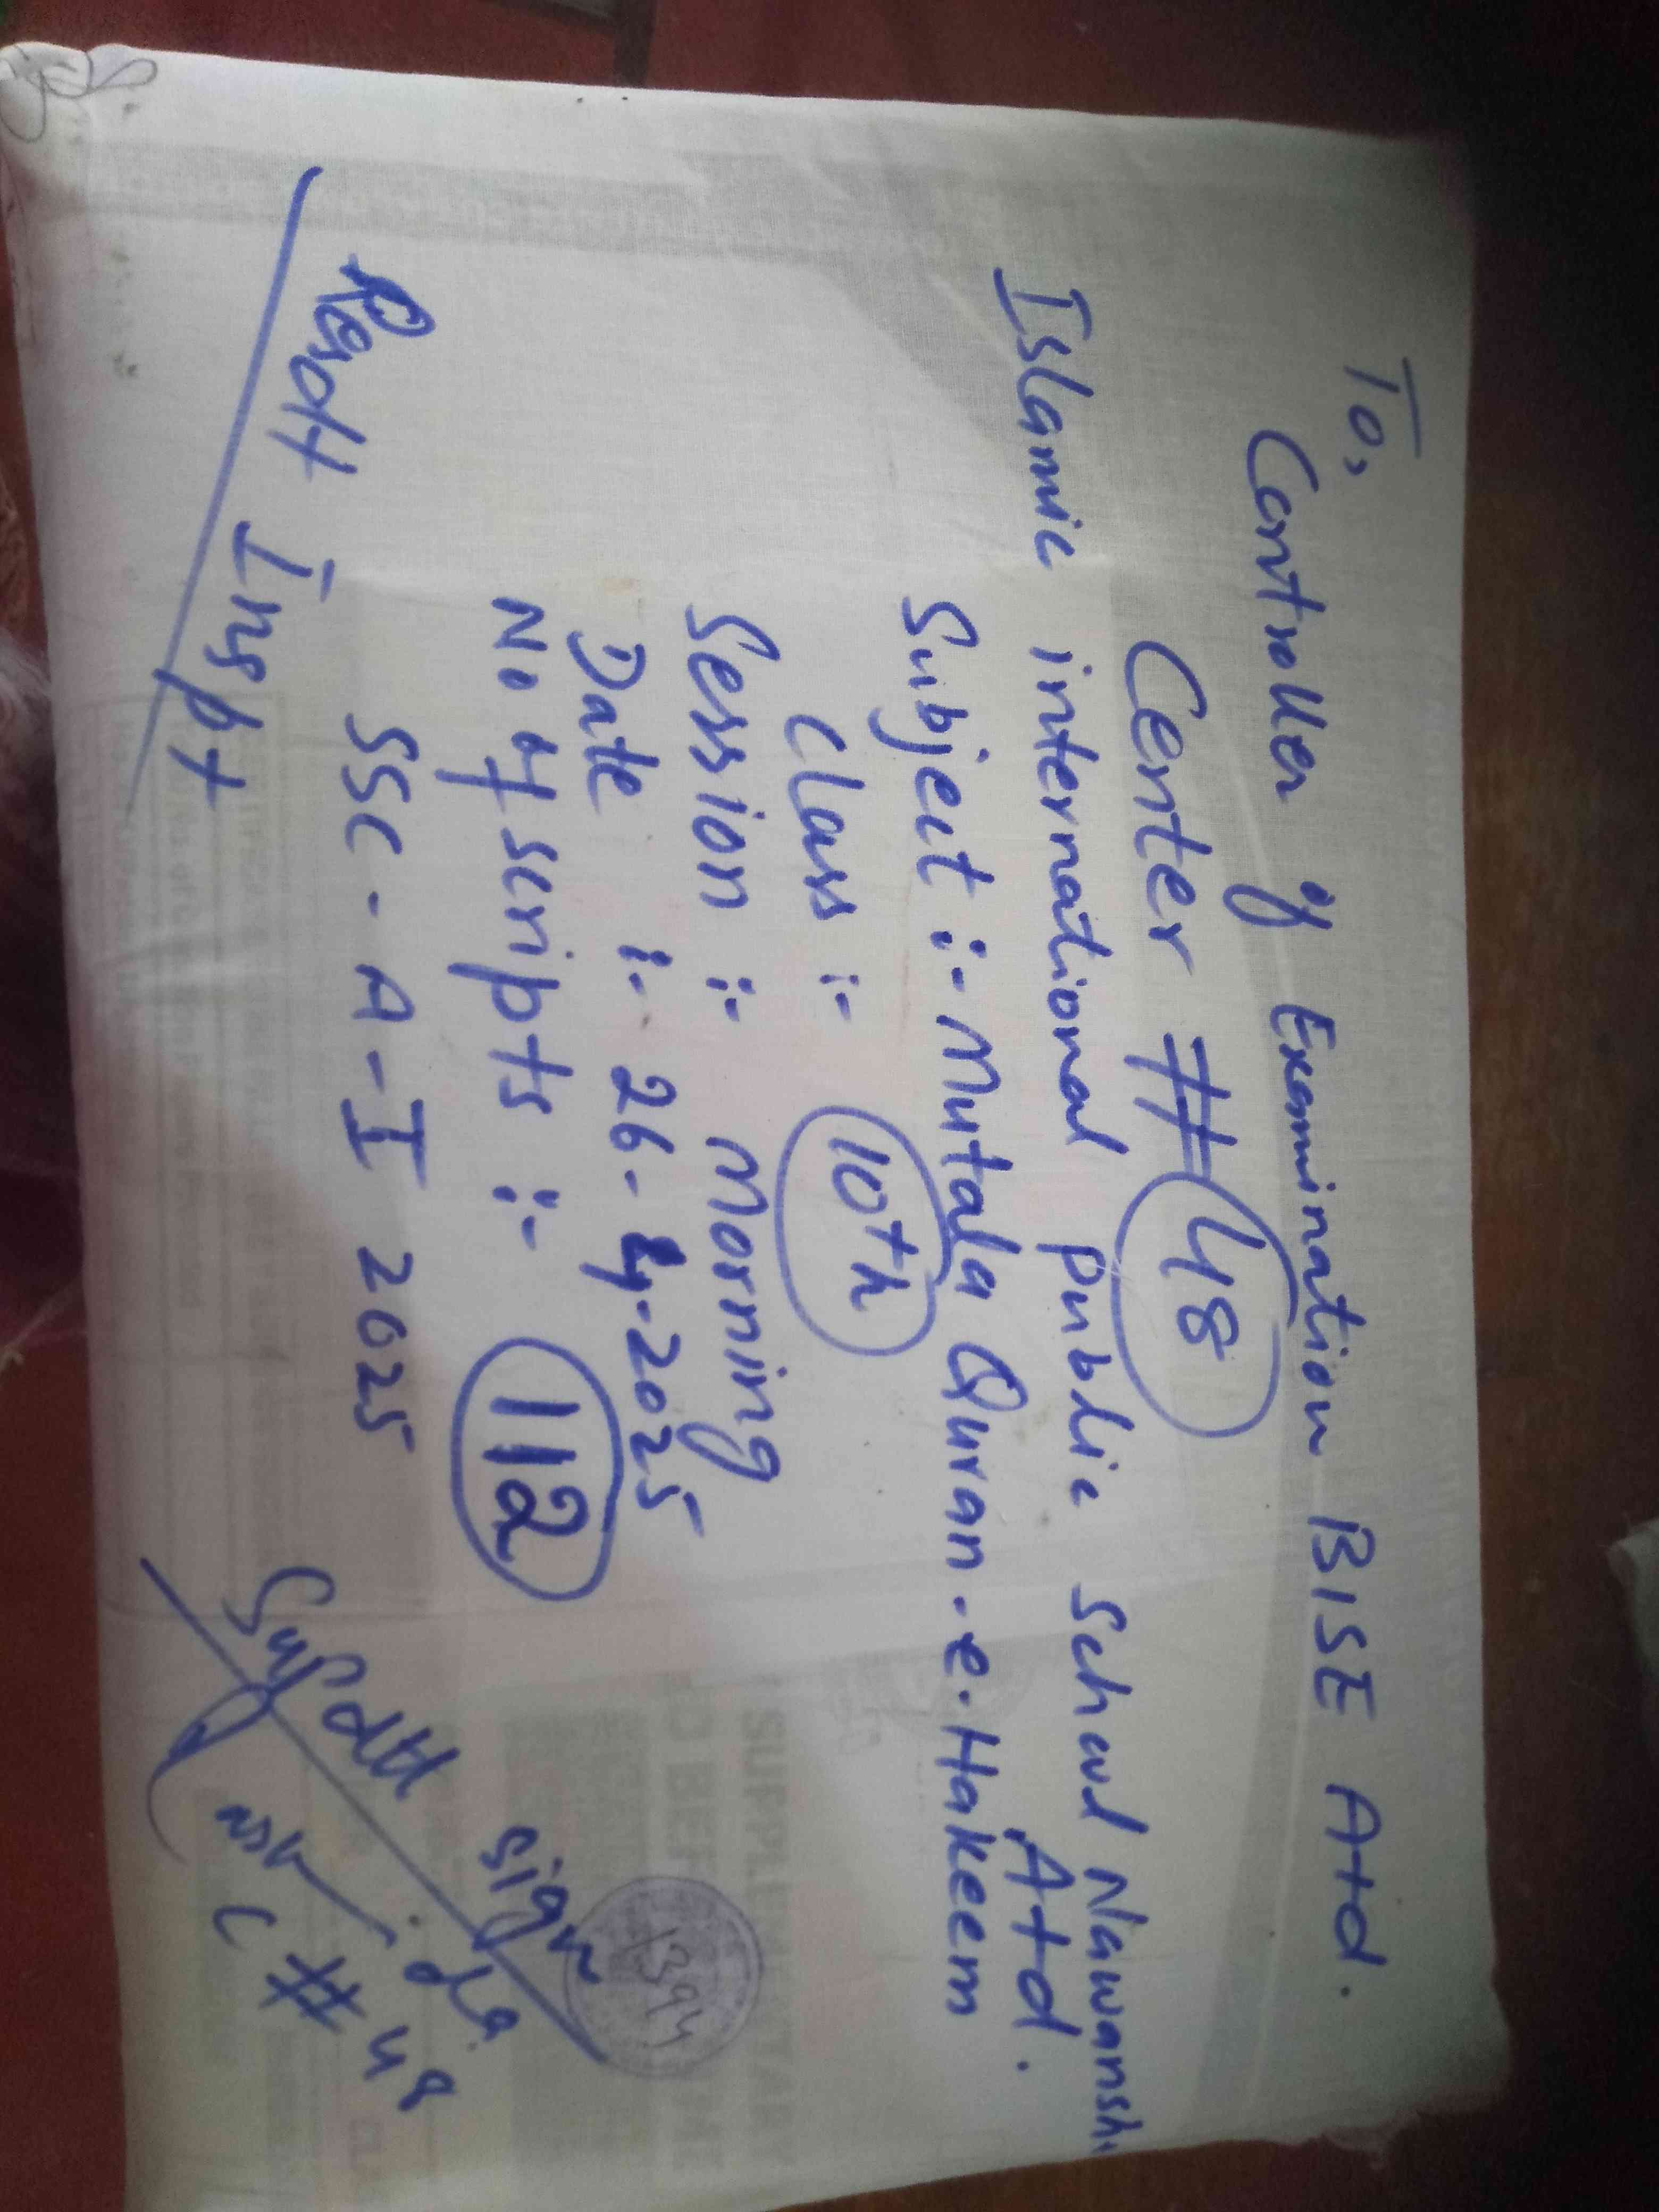 To,
Controller of Examination BISE Atd.
Center # 48
Islamic international public School Nawanshi
Atd.
Subject :- Mutala Quran-e-Hakeem
Class :- 10th
Session :- Morning
Date :- 26-4-2025
No of scripts :- 112
SSC-A-I 2025
Resdt Inspt
Supdt
sign
1394
C # 48
SUPPLEMENTARY